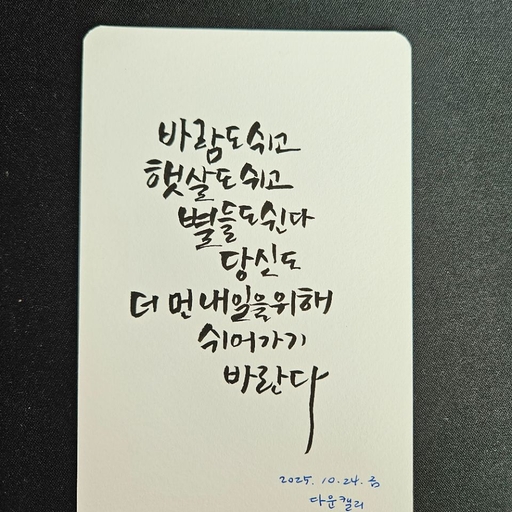 바람도쉬고
햇살도쉬고
별들도쉰다
당신도
더 먼 내일을위해
쉬어가기
바란다
2025. 10. 24. 금
다운캘리